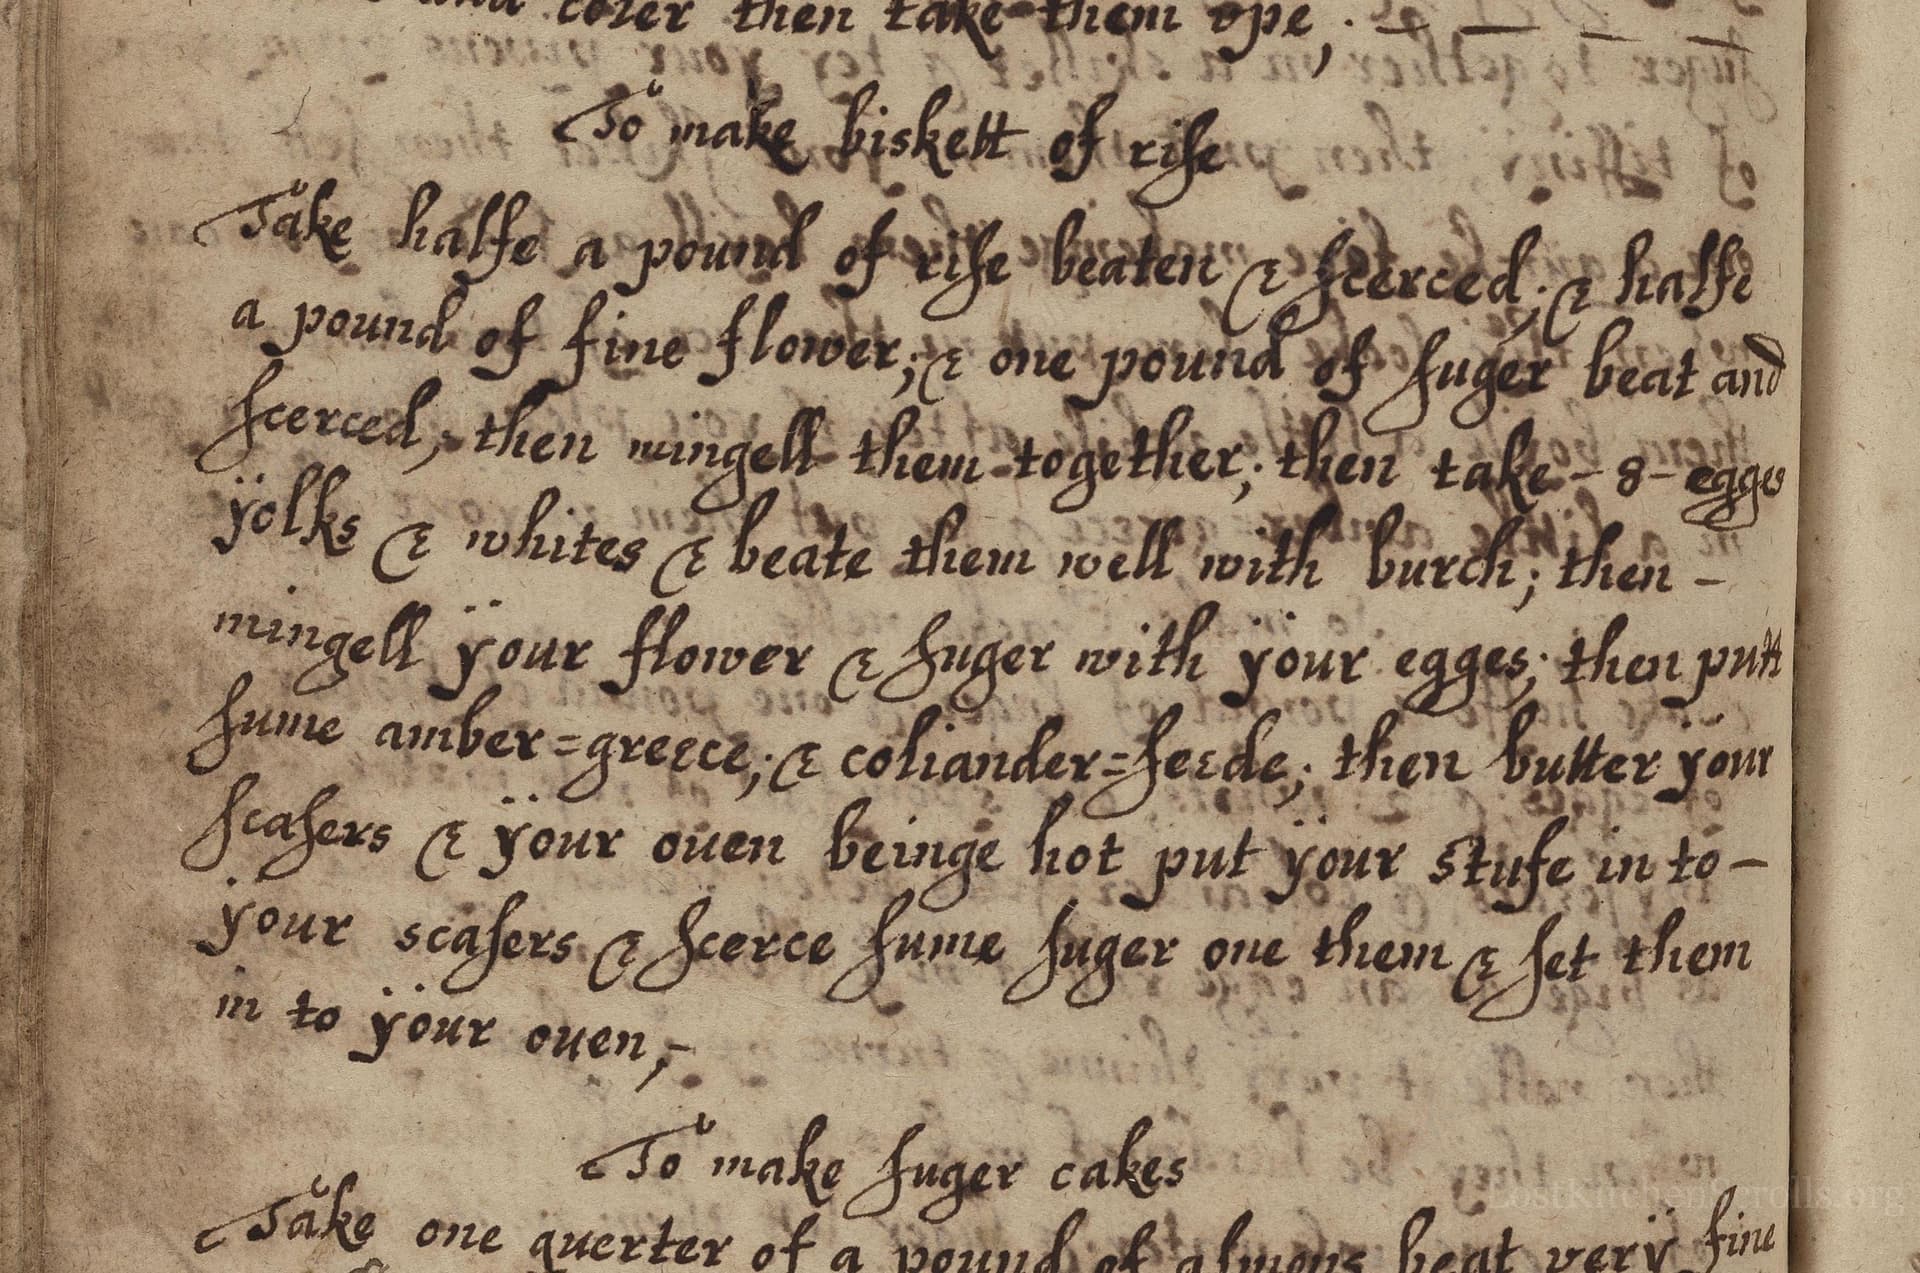 and couer then take them vpe,
To make biskett of rise
Take halfe a pound of rise beaten & scerced; & halfe
a pound of fine flower; & one pound of suger beat and
scerced; then mingell them together; then take - 8 - egges
ÿolks & whites & beate them well with burch; then -
mingell ÿour flower & suger with ÿour egges; then putt
sume amber=greece; & coliander=seede; then butter ÿour
scasers & ÿour ouen beinge hot put ÿour stufe in to -
ÿour scasers & scerce sume suger one them & set them
in to ÿour ouen,-
To make suger cakes
Take one querter of a pound of almons beat verÿ fine
LostKitchenScrolls.org